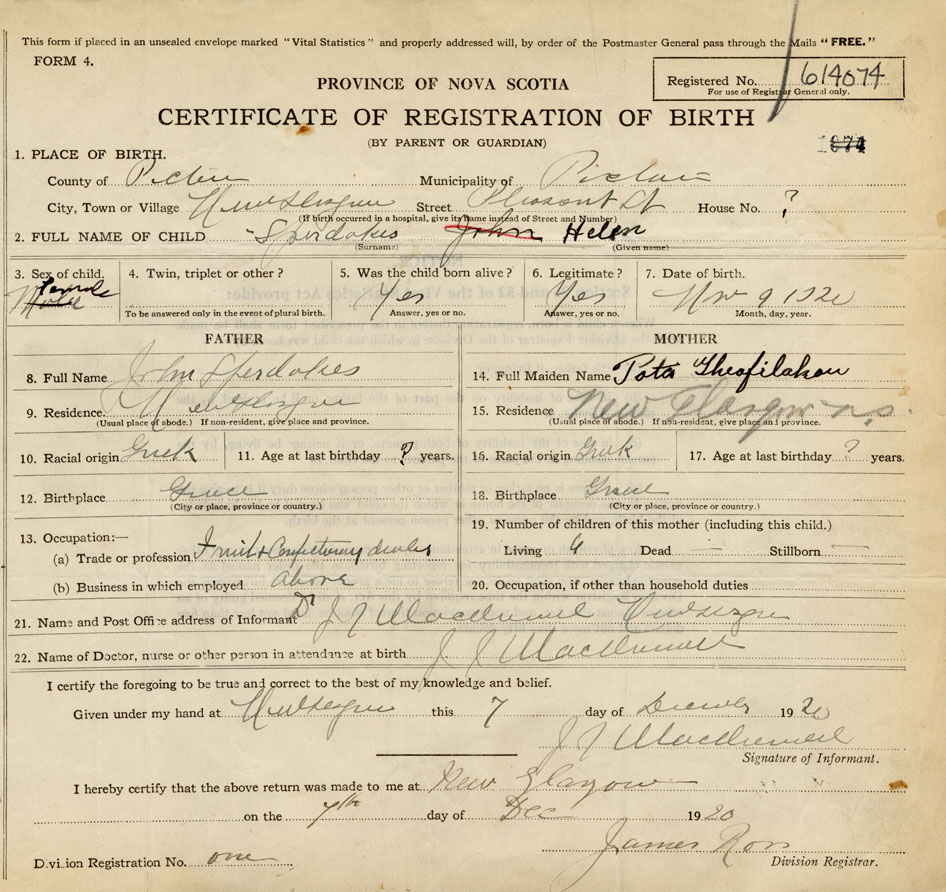 This form if placed in an unsealed envelope marked "Vital Statistics" and properly addressed will, by order of the Postmaster General pass through the Mails "FREE."
FORM 4.
Registered No. 614074
For use of Registrar General only.
PROVINCE OF NOVA SCOTIA
CERTIFICATE OF REGISTRATION OF BIRTH
(BY PARENT OR GUARDIAN)
1874
1. PLACE OF BIRTH.
County of Pictou Municipality of Pictou
City, Town or Village New Glasgow Street Pleasant St House No. ?
(If birth occurred in a hospital, give its name instead of Street and Number)
2. FULL NAME OF CHILD Sperdakes John Helen
(Surname) (Given name)
3. Sex of child. Female Male
4. Twin, triplet or other?
To be answered only in the event of plural birth.
5. Was the child born alive? Yes
Answer, yes or no.
6. Legitimate? Yes
Answer, yes or no.
7. Date of birth. Nov 9 1920
Month, day, year.
FATHER
8. Full Name John Sperdakes
9. Residence New Glasgow
(Usual place of abode.) If non-resident, give place and province.
10. Racial origin Greek 11. Age at last birthday ? years.
12. Birthplace Greece
(City or place, province or country.)
13. Occupation:—
(a) Trade or profession Fruit & Confectionery dealer
(b) Business in which employed above
MOTHER
14. Full Maiden Name Pota Theofilakou
15. Residence New Glasgow N.S.
(Usual place of abode.) If non-resident, give place and province.
16. Racial origin Greek 17. Age at last birthday ? years.
18. Birthplace Greece
(City or place, province or country.)
19. Number of children of this mother (including this child.)
Living 6 Dead — Stillborn —
20. Occupation, if other than household duties
21. Name and Post Office address of Informant Dr J J Macdonald New Glasgow
22. Name of Doctor, nurse or other person in attendance at birth J J Macdonald
I certify the foregoing to be true and correct to the best of my knowledge and belief.
Given under my hand at New Glasgow this 7 day of December 1920
J J Macdonald
Signature of Informant.
I hereby certify that the above return was made to me at New Glasgow
on the 7th day of Dec 1920
James Ross
Division Registration No. one Division Registrar.